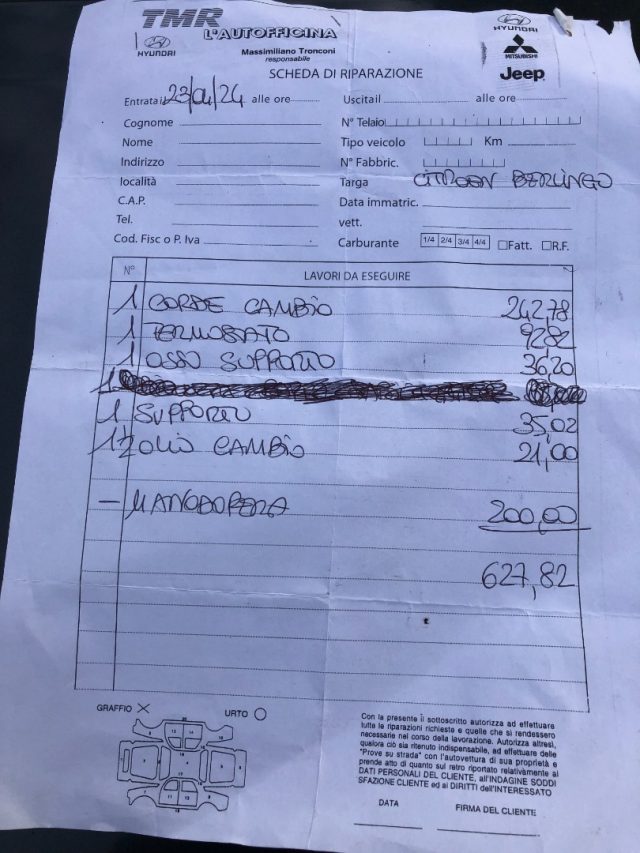 TMR
L'AUTOFFICINA
HYUNDAI
Massimiliano Tronconi
responsabile
HYUNDAI
MITSUBISHI
Jeep
SCHEDA DI RIPARAZIONE
Entrata il 23/04/24 alle ore
Uscita il alle ore
Cognome
N° Telaio
Nome
Tipo veicolo Km
Indirizzo
N° Fabbric.
località
Targa CITROEN BERLINGO
C.A.P.
Data immatric.
Tel.
vett.
Cod. Fisc o P. Iva
Carburante 1/4 2/4 3/4 4/4 Fatt. R.F.
N° LAVORI DA ESEGUIRE
1 CORDE CAMBIO 242,78
1 TERMOSTATO 92,82
1 OSSO SUPPORTO 36,20
1
1 SUPPORTO 35,02
12 OLIO CAMBIO 21,00
- MANODOPERA 200,00
627,82
GRAFFIO X URTO O
Con la presente il sottoscritto autorizza ad effettuare
tutte le riparazioni richieste e quelle che si rendessero
necessarie nel corso della lavorazione. Autorizza altresì,
qualora ciò sia ritenuto indispensabile, ad effettuare delle
"Prove su strada" con l'autovettura di sua proprietà e
prende atto di quanto sul retro riportato relativamente al
DATI PERSONALI DEL CLIENTE, all'INDAGINE SODDI
SFAZIONE CLIENTE ed ai DIRITTI dell'INTERESSATO
DATA FIRMA DEL CLIENTE